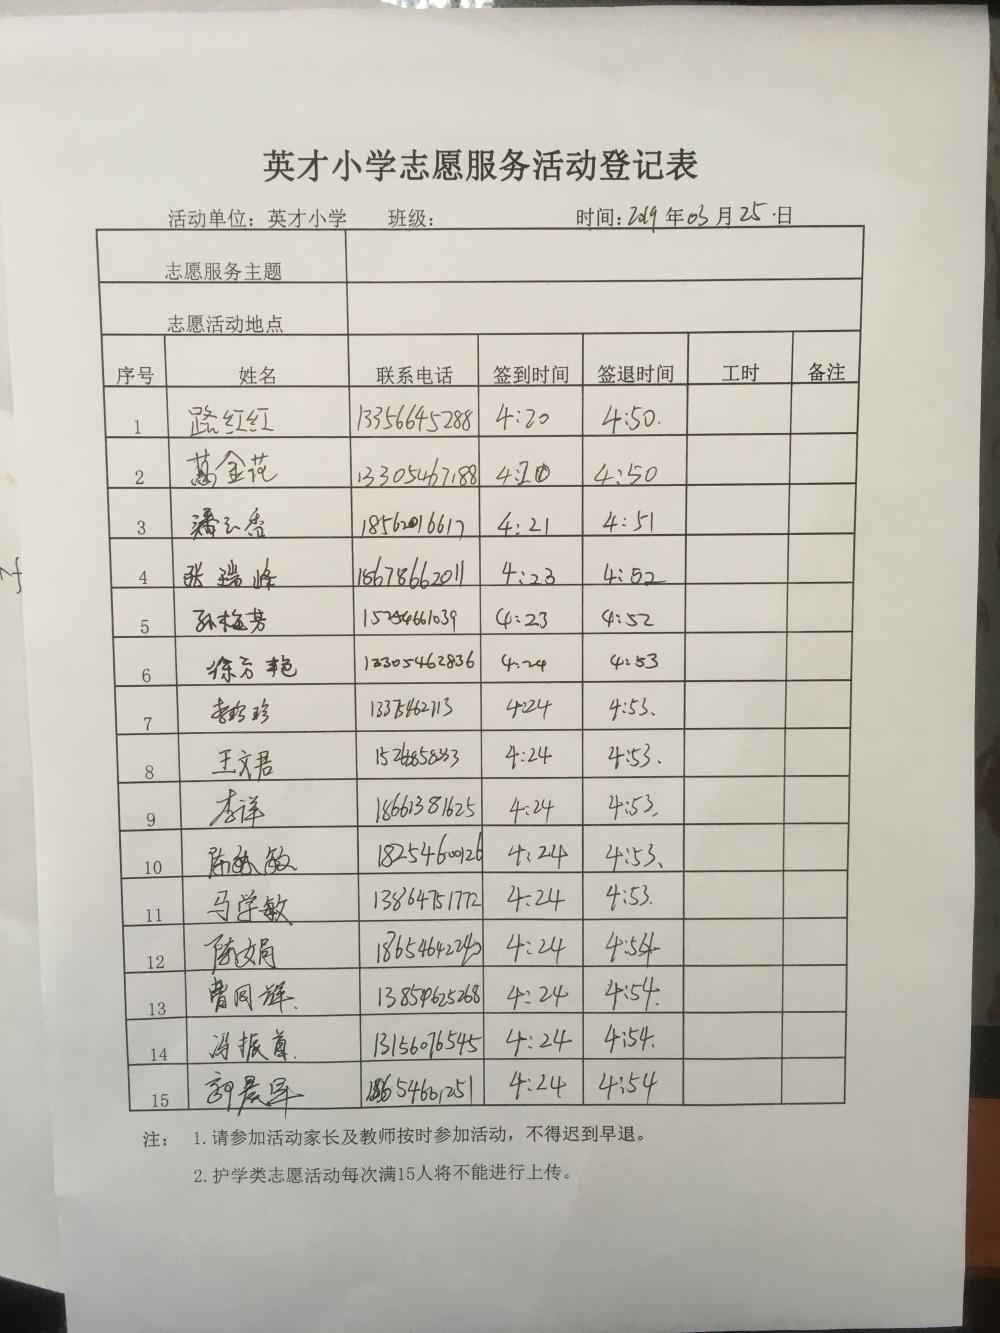 英才小学志愿服务活动登记表
活动单位：英才小学 班级： 时间：2019 年 03 月 25 日
志愿服务主题
志愿活动地点
序号 姓名 联系电话 签到时间 签退时间 工时 备注
1 路红红 13356645288 4:20 4:50
2 金花 13305467188 4:20 4:50
3 潘云香 18562016617 4:21 4:51
4 张瑞峰 18678662011 4:23 4:52
5 孙梅芳 4:23 4:52
6 徐方艳 13305462836 4:24 4:53
7 李珍珍 4:24 4:53
8 王文君 4:24 4:53
9 李祥 18661381625 4:24 4:53
10 敏 18254600126 4:24 4:53
11 马学敏 13864751772 4:24 4:53
12 陈文娟 18654642240 4:24 4:54
13 曹同辉 13854625268 4:24 4:54
14 冯振尊 13156076545 4:24 4:54
15 郭晨军 4:24 4:54
注： 1.请参加活动家长及教师按时参加活动，不得迟到早退。
2.护学类志愿活动每次满15人将不能进行上传。